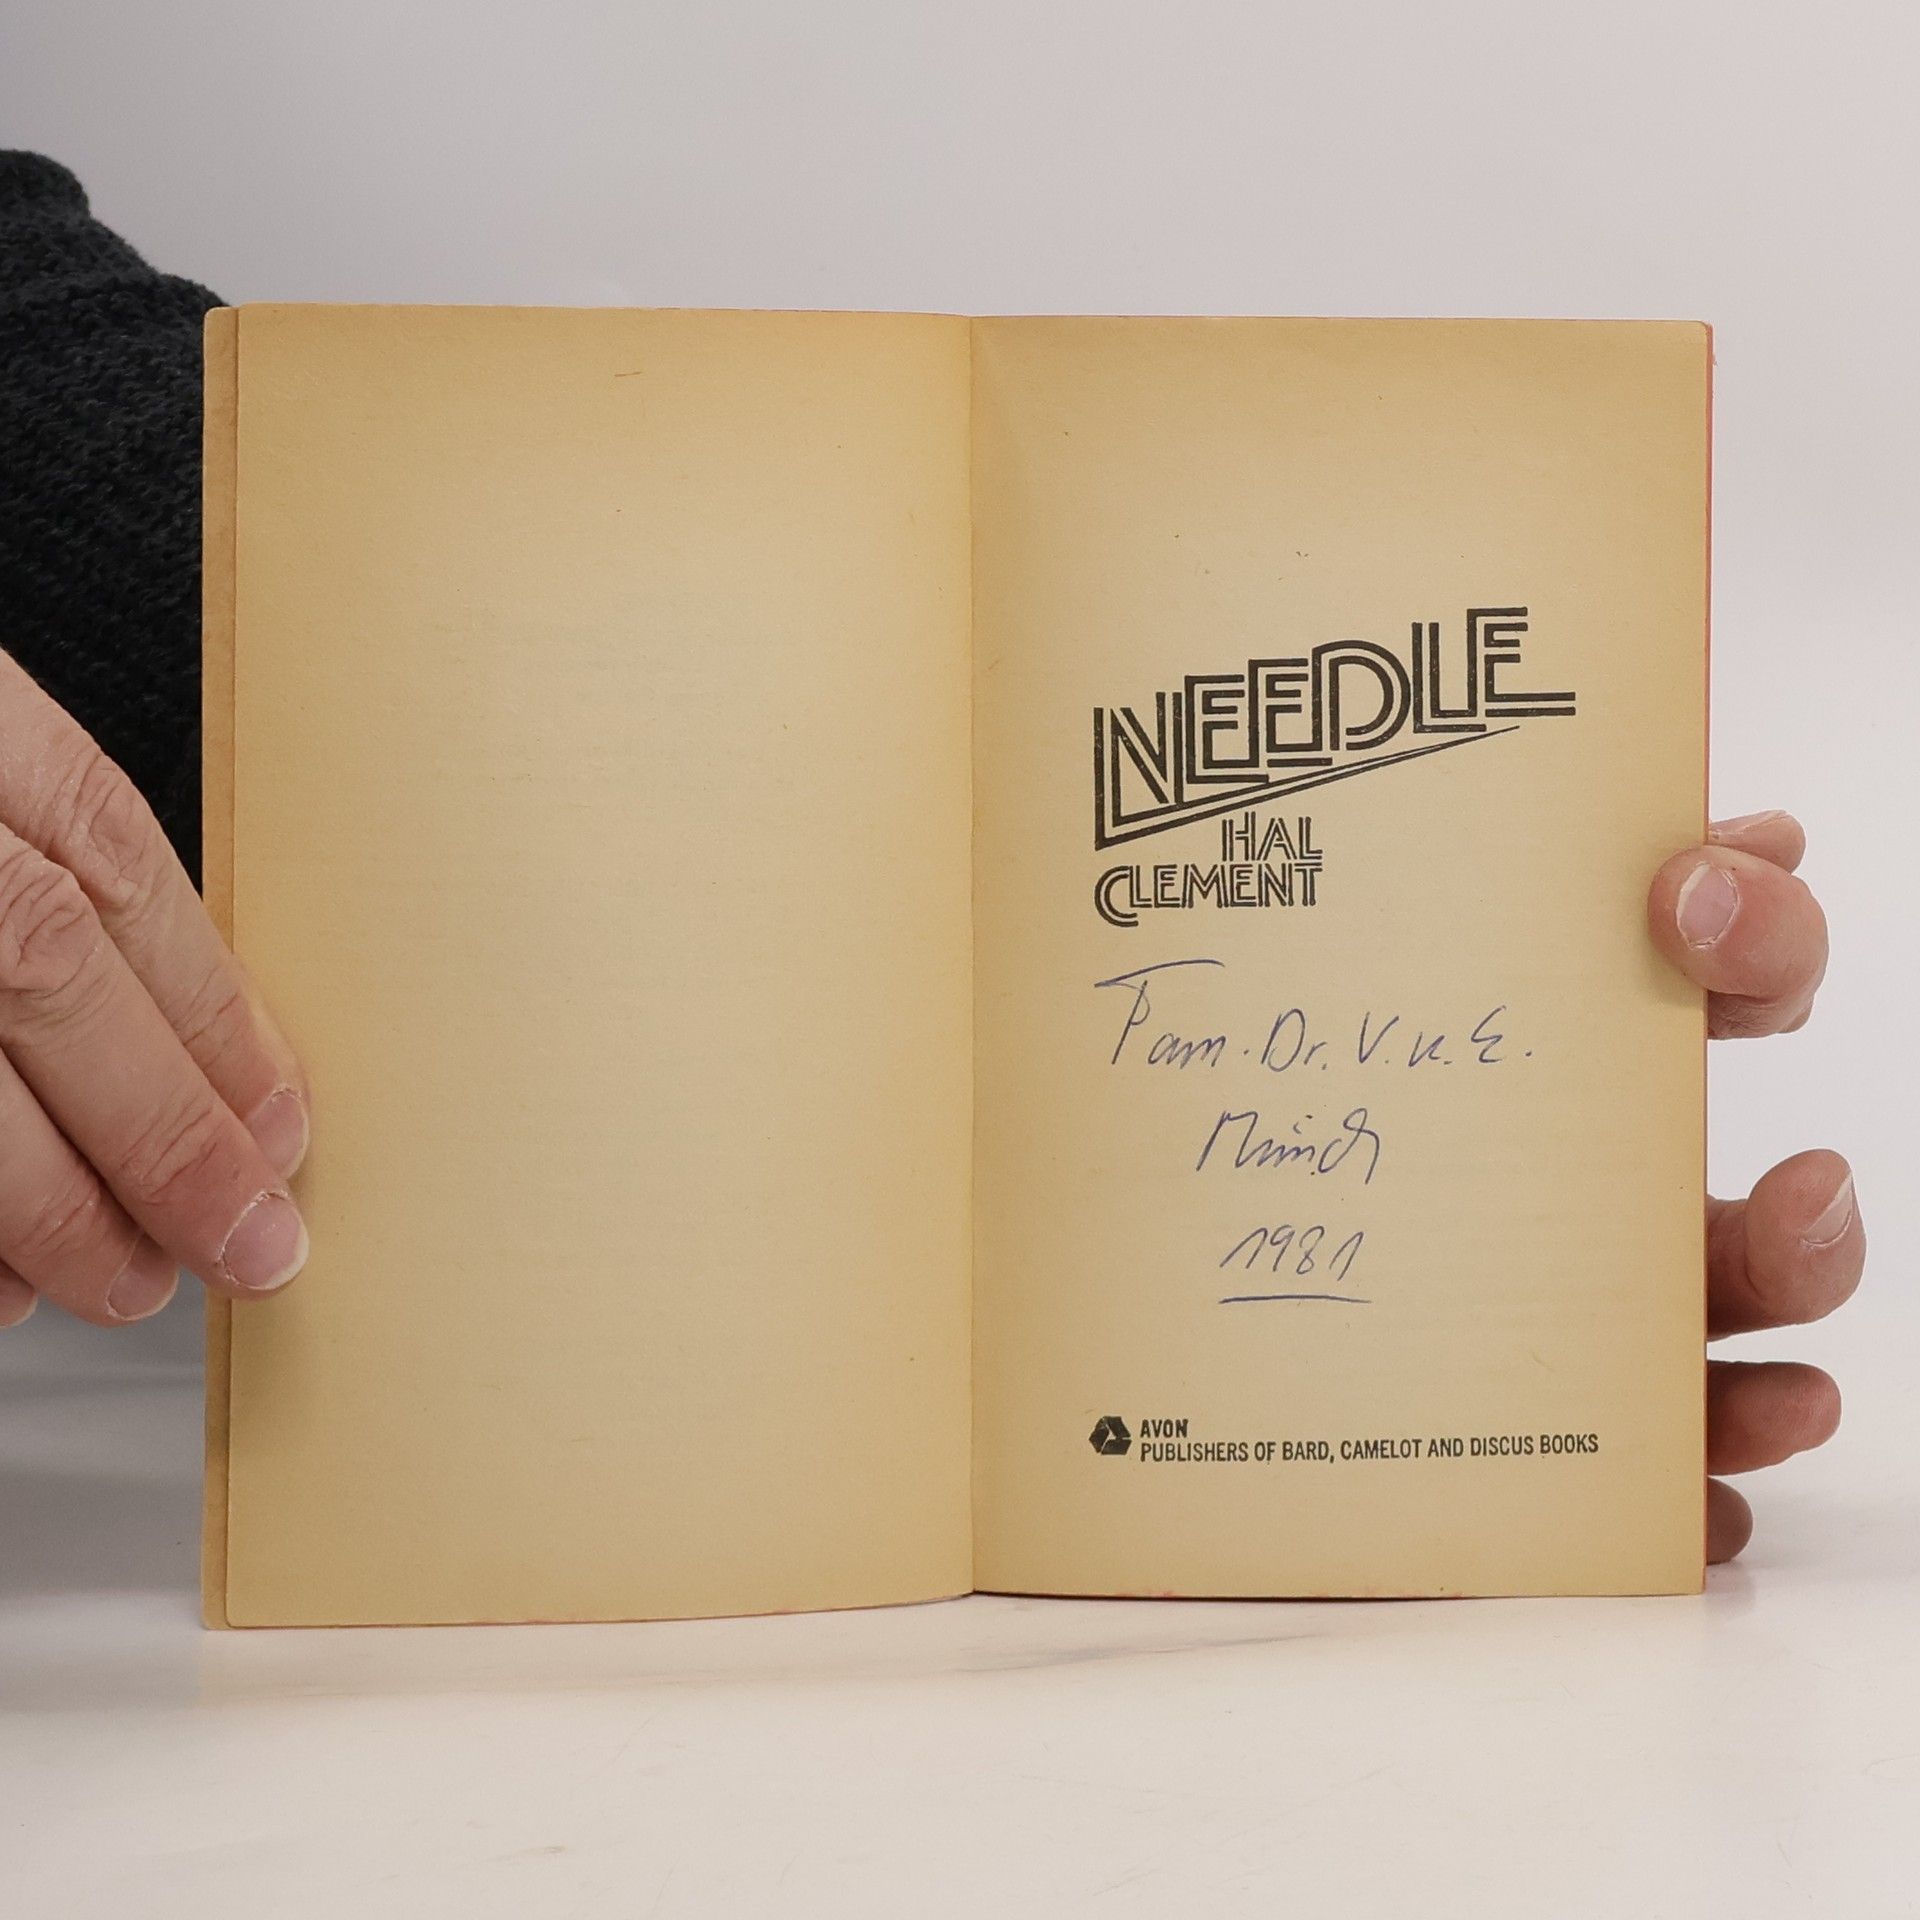 NEEDLE
HAL
CLEMENT
Fam. Dr. V. u. E.
Münch
1981
AVON
PUBLISHERS OF BARD, CAMELOT AND DISCUS BOOKS